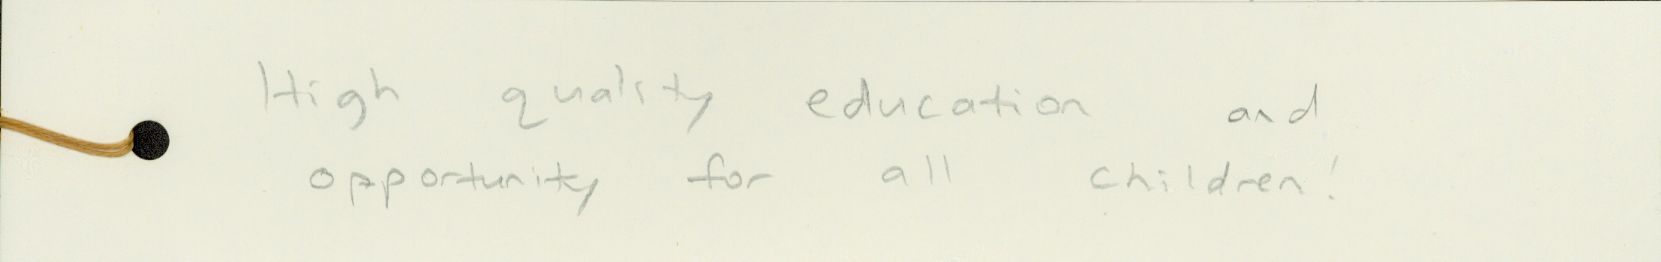 High quality education and
opportunity for all children!